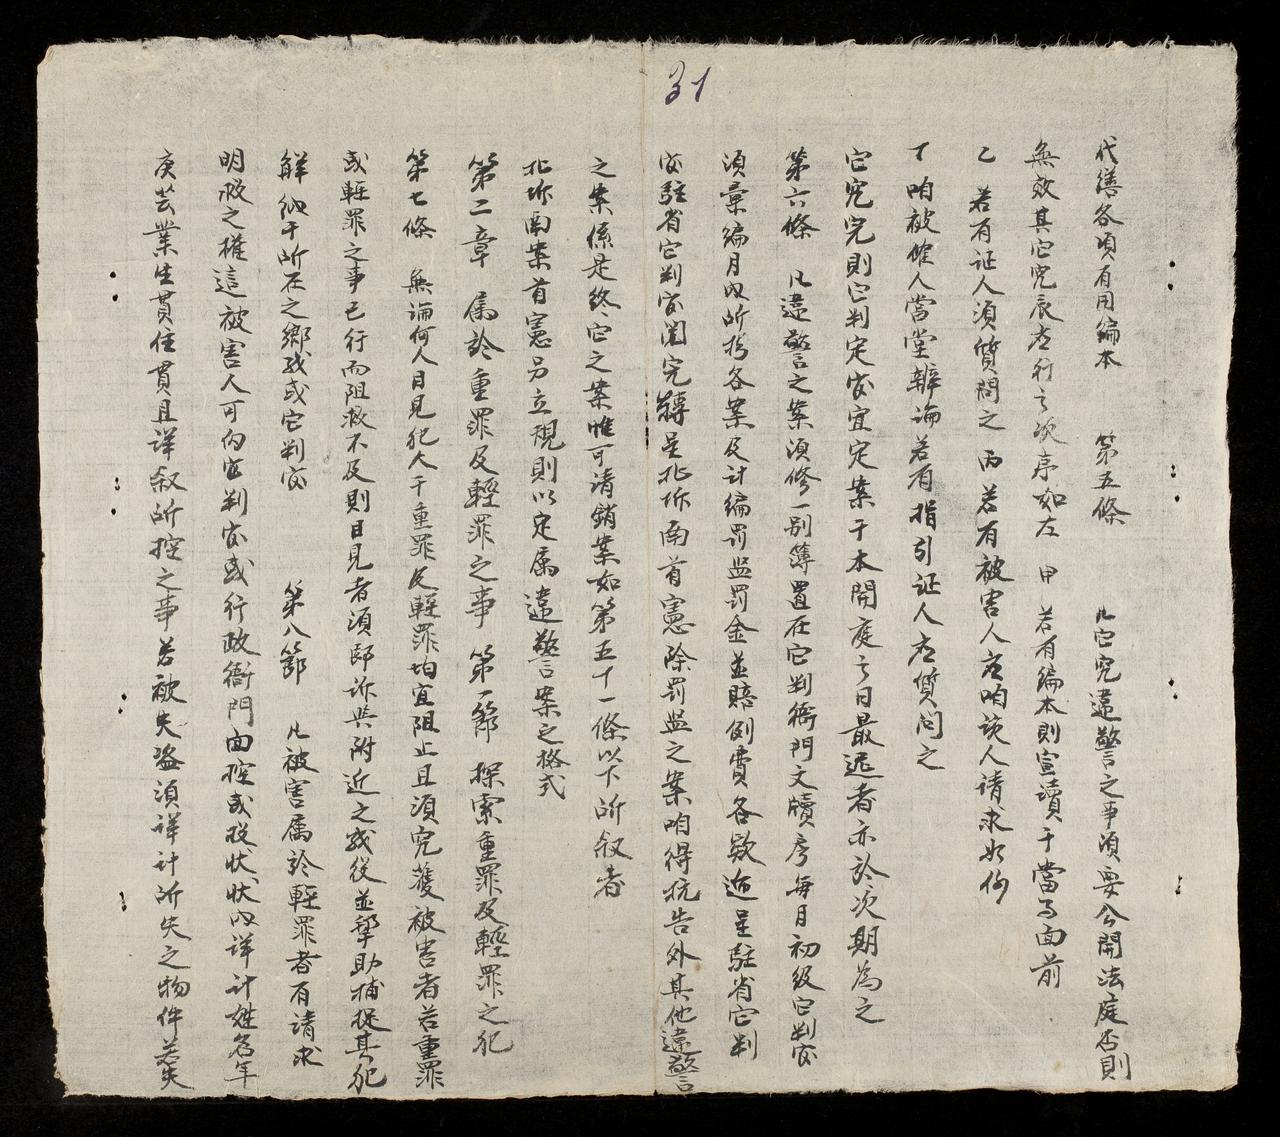 31
代繕各項有用编本　第五條　凡它究違警之事須要公開法庭否則
無效其它究辰左行之次序如左　甲　若有编本則宣讀于當事面前
乙　若有证人須質問之　丙　若有被害人左咱该人请求如何
丁　咱被催人當堂辨論若有指引证人左質问之
它究完則它判定官宜定案于本開庭之日最远者亦於次期為之
第六條　凡違警之案須修一别簿置在它判衙門文牘房每月初級它判官
須彙编月内所拷各案及计编罰监罰金並賠例費各欵逓呈駐省它判
官駐省它判官閲完轉呈北圻南首憲除罰监之案咱得抗告外其他違警
之案係是终它之案惟可请銷案如第五十一條以下所叙者
北圻南案首憲另立規則以定属違警案之格式
第二章　属於重罪及輕罪之事　第一節　探索重罪及輕罪之犯
第七條　無論何人目見犯人干重罪及輕罪均宜阻止且須究獲被害者若重罪
或輕罪之事已行而阻救不及則目見者須即訴與附近之或役並幫助捕捉其犯
解纳于所在之鄉或或它判官　第八節　凡被害属於輕罪者有请求
明救之權這被害人可向它判官或行政衙門面控或投状状内详计姓名年
庚芸業生貫住貫且详叙所控之事若被失盗須详计所失之物件若失